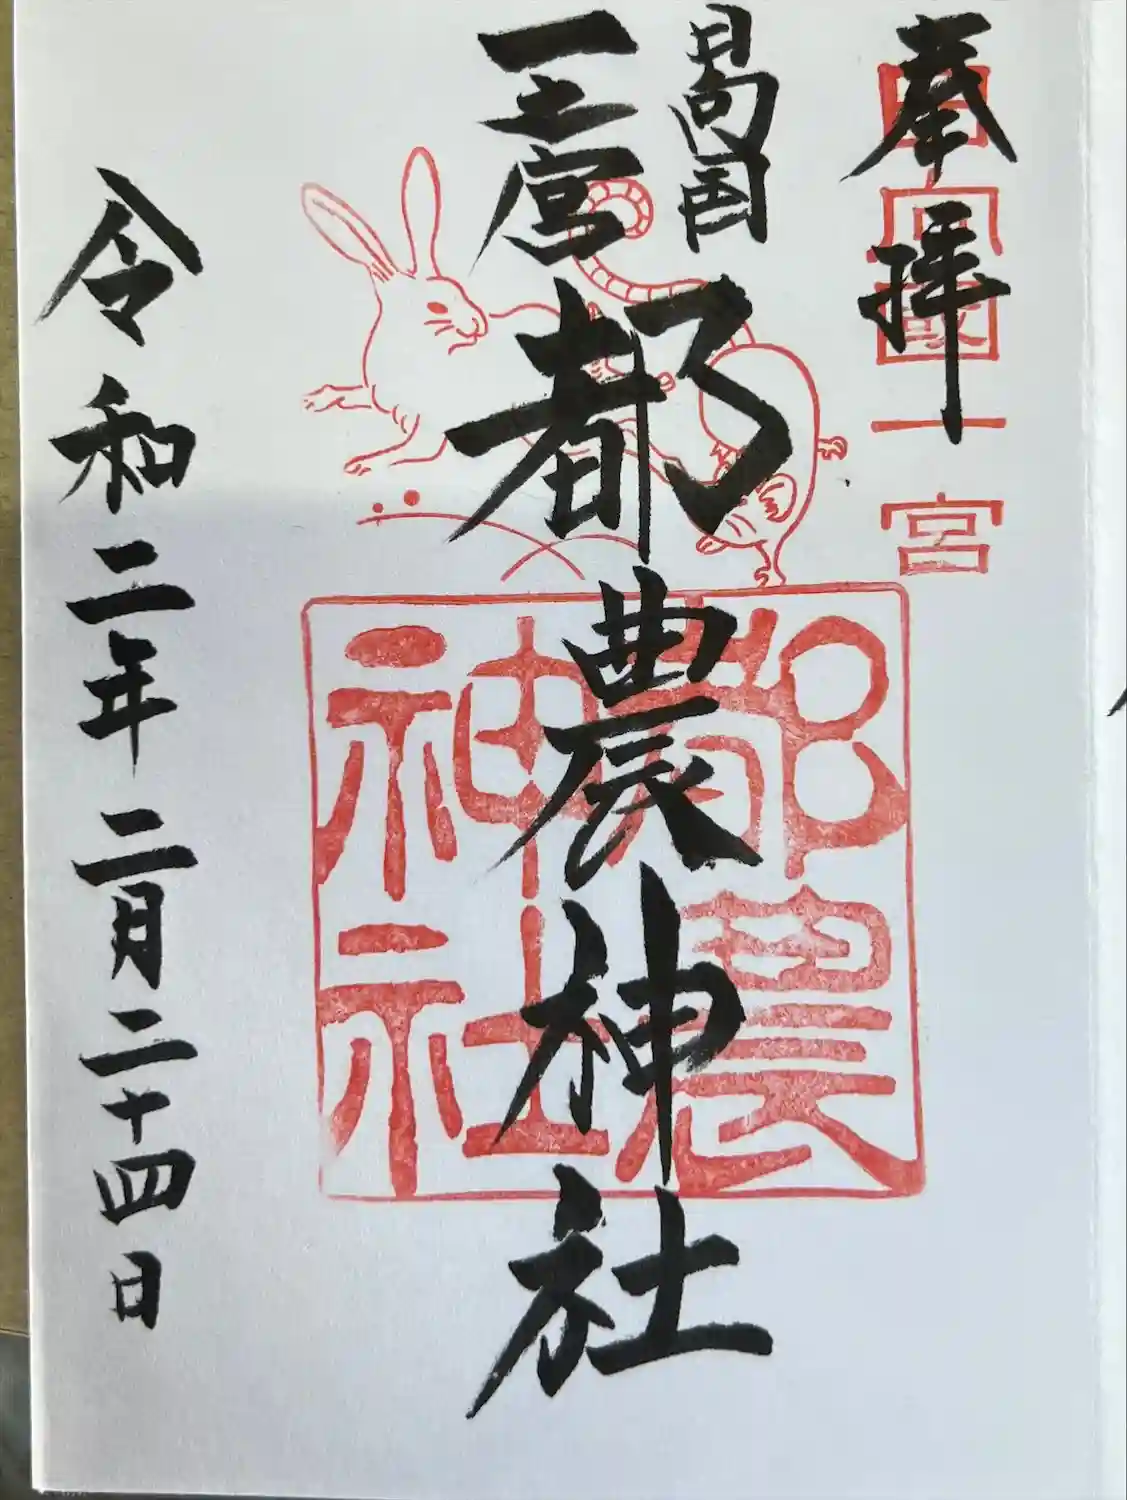 奉拝
日向國一宮
日向国
一之宮
都農神社
都農神社
令和二年二月二十四日